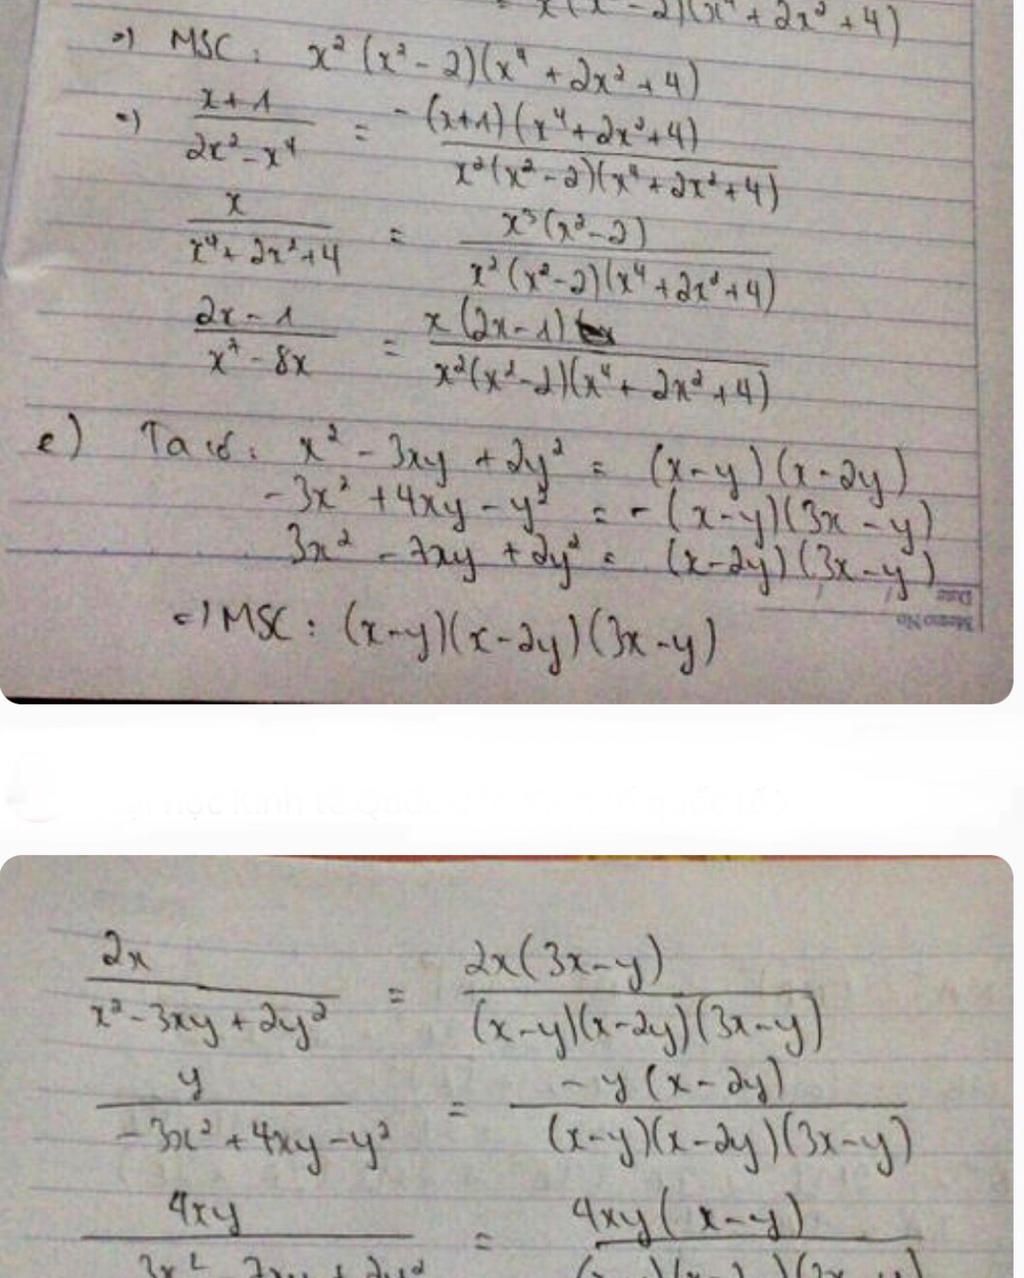 = x(x² - 2)(x⁴ + 2x² + 4)
=) MSC: x² (x² - 2)(x⁴ + 2x² + 4)
=) x+1 / 2x² - x⁴ = -(x+1)(x⁴ + 2x² + 4) / x²(x² - 2)(x⁴ + 2x² + 4)
x / x⁴ + 2x² + 4 = x³(x² - 2) / x²(x² - 2)(x⁴ + 2x² + 4)
2x - 1 / x⁷ - 8x = x(2x - 1) / x²(x² - 2)(x⁴ + 2x² + 4)
e) Ta có: x² - 3xy + 2y² = (x - y)(x - 2y)
-3x² + 4xy - y² = -(x - y)(3x - y)
3x² - 7xy + 2y² = (x - 2y)(3x - y)
Date / /
Memo No
=) MSC: (x - y)(x - 2y)(3x - y)
2x / x² - 3xy + 2y² = 2x(3x - y) / (x - y)(x - 2y)(3x - y)
y / -3x² + 4xy - y² = -y(x - 2y) / (x - y)(x - 2y)(3x - y)
4xy / 3x² - 7xy + 2y² = 4xy(x - y) / (x - y)(x - 2y)(3x - y)